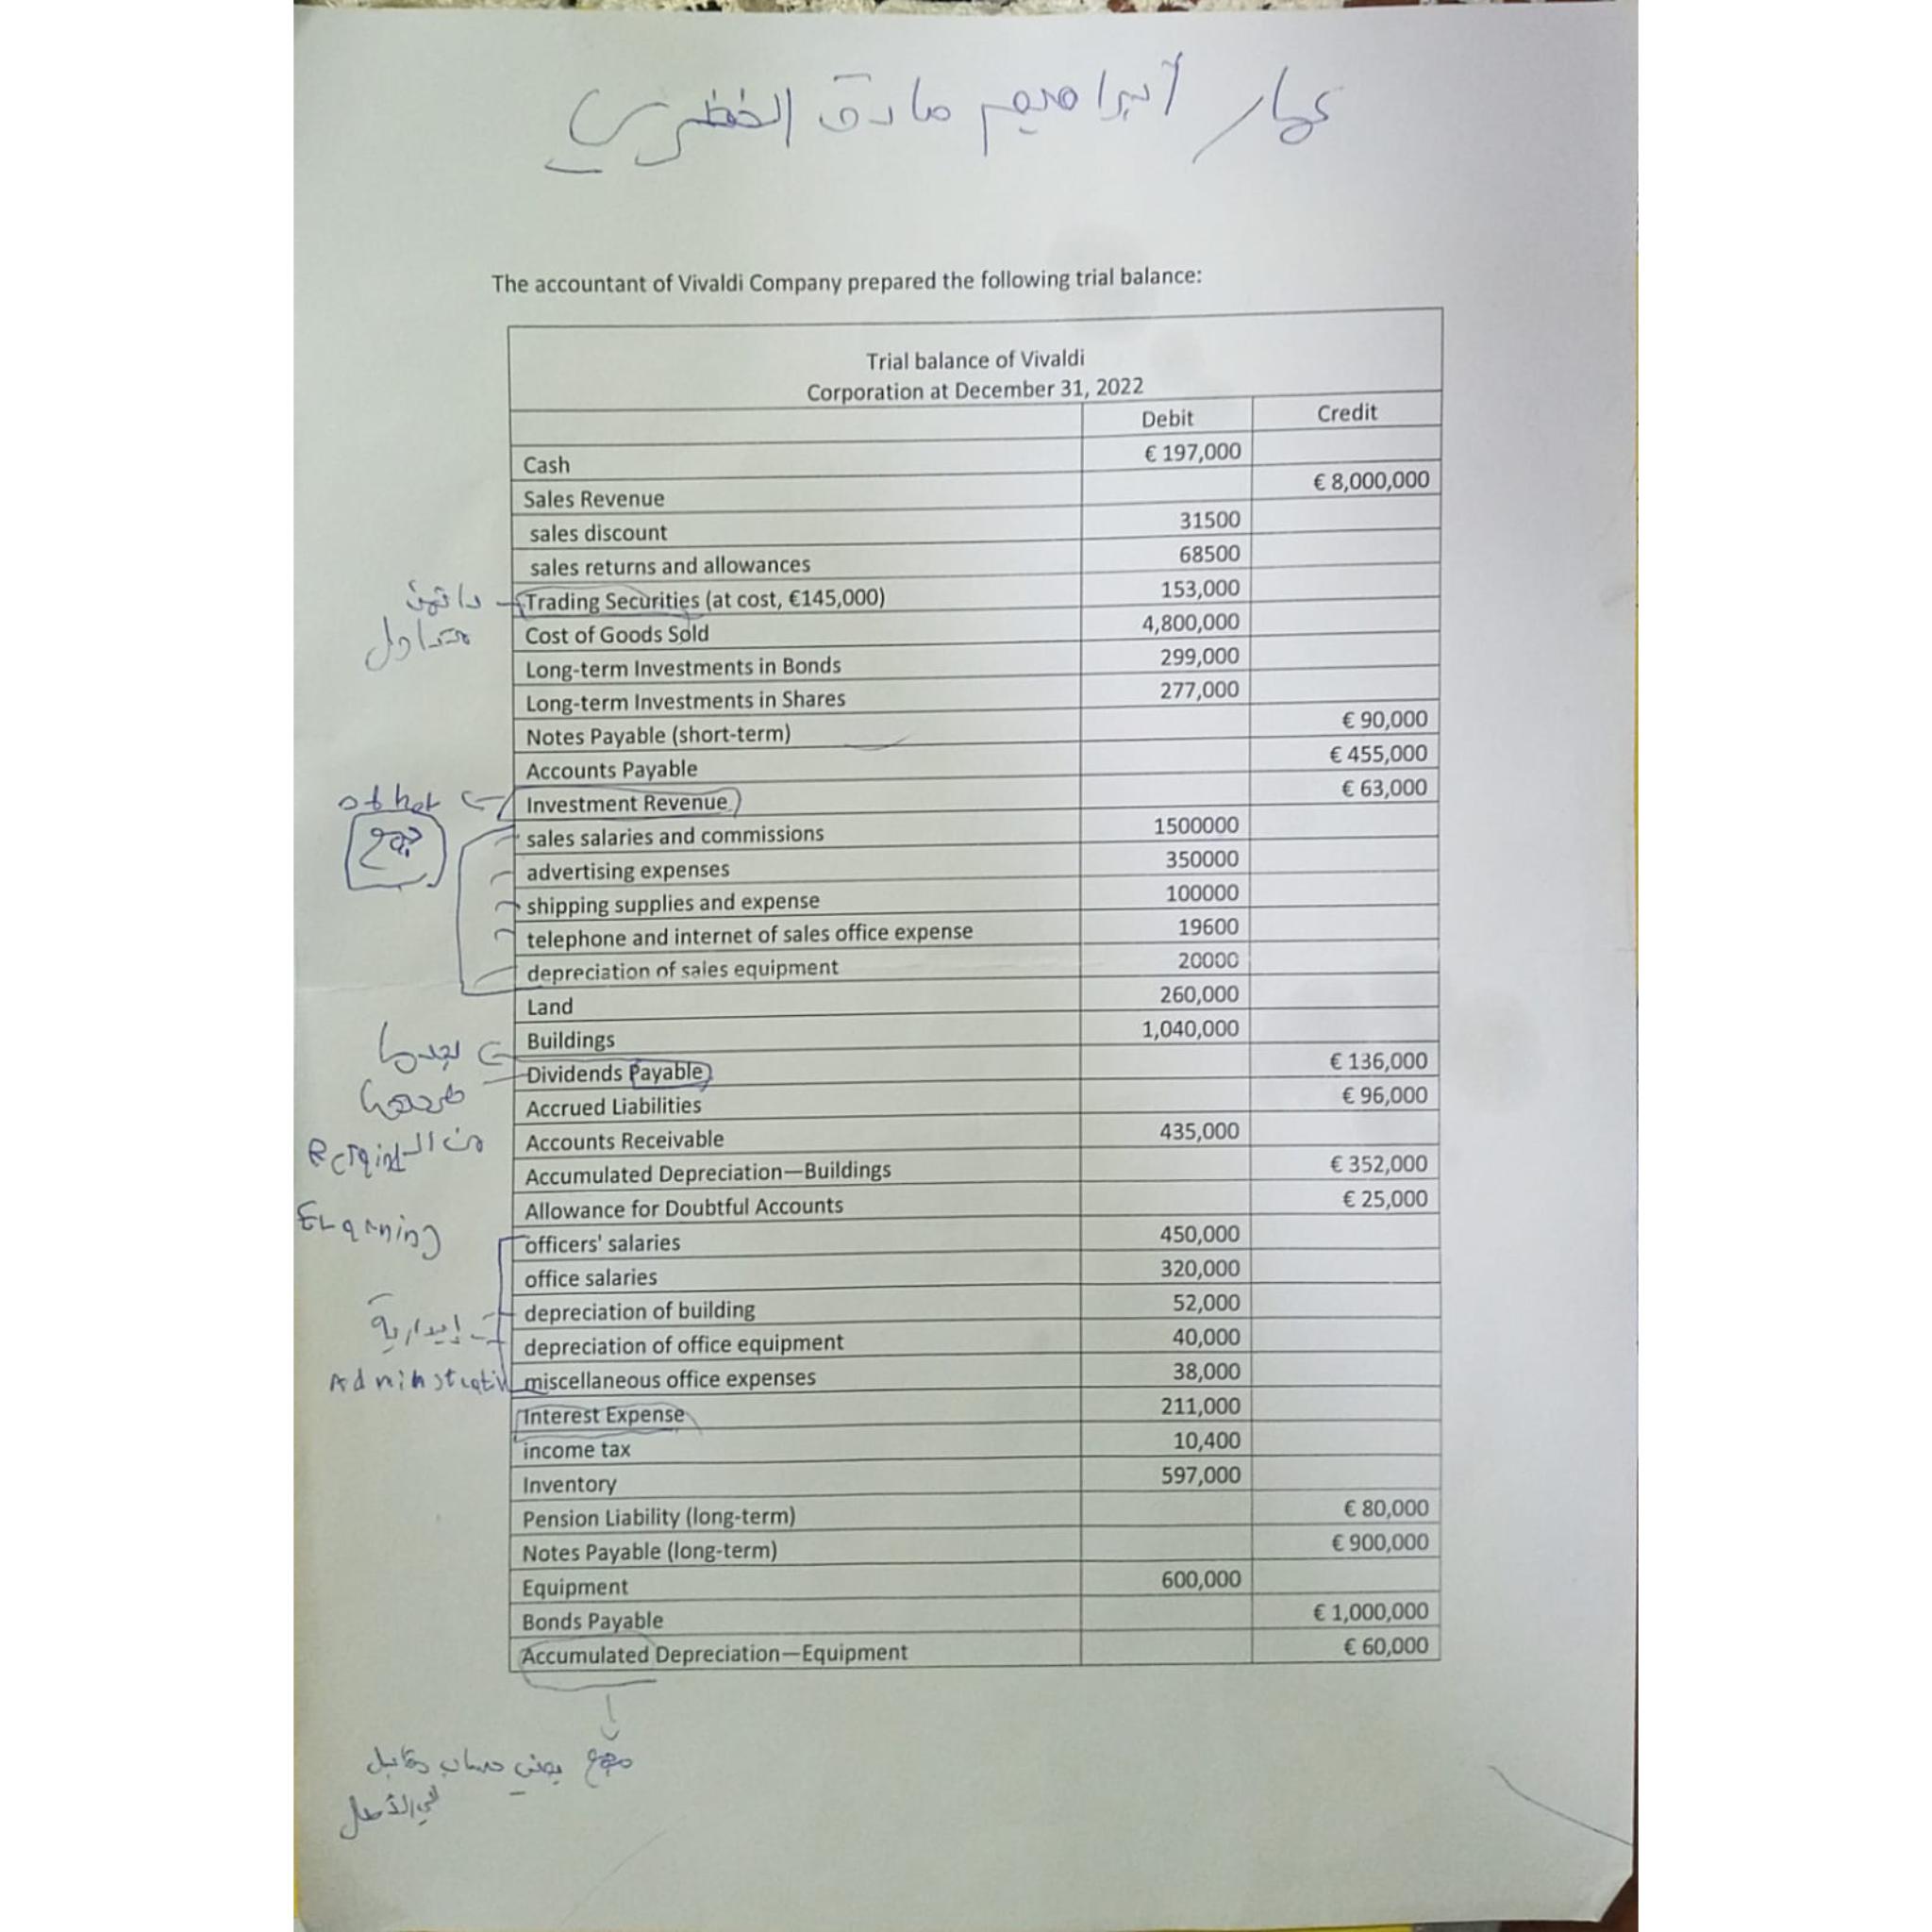 عمار ابراهيم صادق الخضري
The accountant of Vivaldi Company prepared the following trial balance:
Trial balance of Vivaldi
Corporation at December 31, 2022
Debit Credit
Cash € 197,000
Sales Revenue € 8,000,000
sales discount 31500
sales returns and allowances 68500
Trading Securities (at cost, €145,000) 153,000
متداول
Cost of Goods Sold 4,800,000
Long-term Investments in Bonds 299,000
Long-term Investments in Shares 277,000
Notes Payable (short-term) € 90,000
Accounts Payable € 455,000
other Investment Revenue € 63,000
بيع
sales salaries and commissions 1500000
advertising expenses 350000
shipping supplies and expense 100000
telephone and internet of sales office expense 19600
depreciation of sales equipment 20000
Land 260,000
Buildings 1,040,000
Dividends Payable € 136,000
Accrued Liabilities € 96,000
من الـ
Accounts Receivable 435,000
Accumulated Depreciation—Buildings € 352,000
Allowance for Doubtful Accounts € 25,000
officers' salaries 450,000
office salaries 320,000
إدارية depreciation of building 52,000
depreciation of office equipment 40,000
miscellaneous office expenses 38,000
Interest Expense 211,000
income tax 10,400
Inventory 597,000
Pension Liability (long-term) € 80,000
Notes Payable (long-term) € 900,000
Equipment 600,000
Bonds Payable € 1,000,000
Accumulated Depreciation—Equipment € 60,000
مجمع يعني حساب مقابل
في الأصل